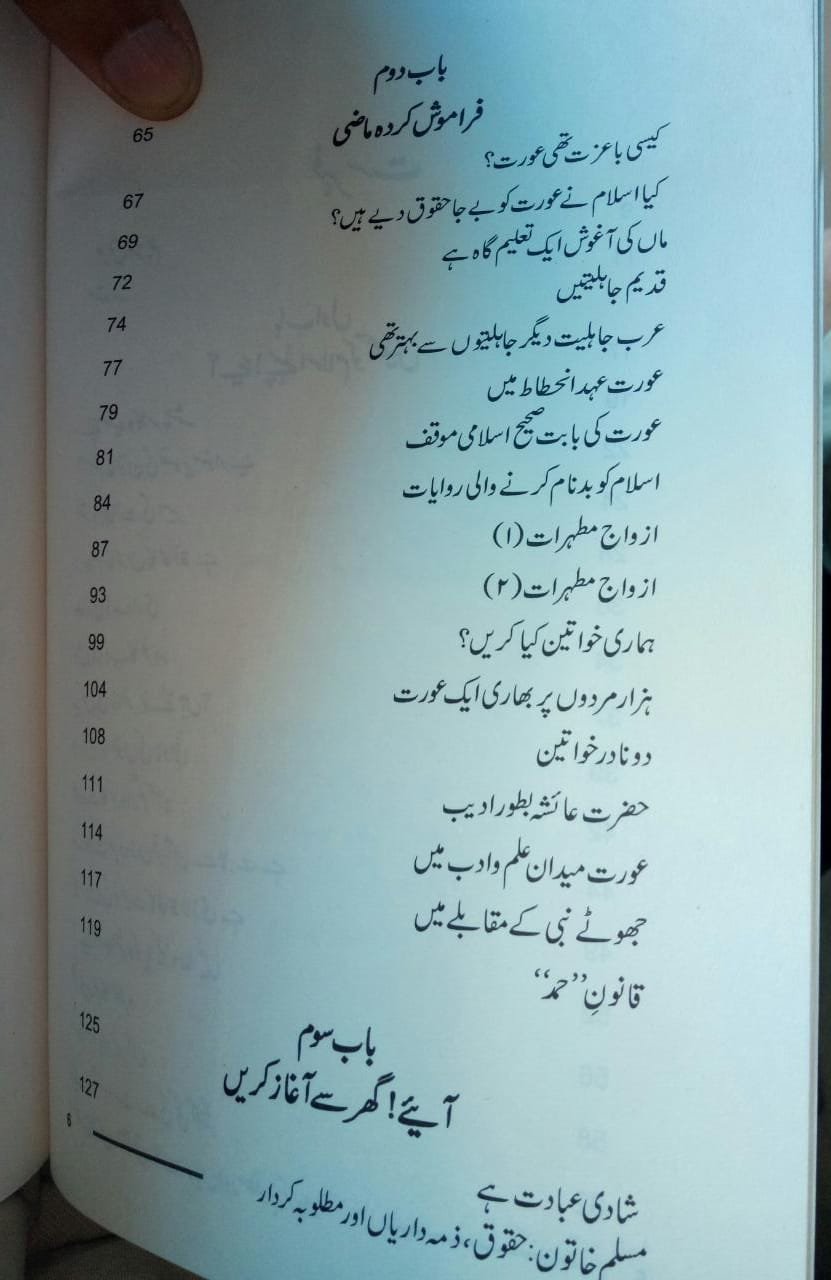 باب دوم
فراموش کردہ ماضی
کیسی باعزت تھی عورت؟ 65
کیا اسلام نے عورت کو بے جا حقوق دیے ہیں؟ 67
ماں کی آغوش ایک تعلیم گاہ ہے 69
قدیم جاہلیتیں 72
عرب جاہلیت دیگر جاہلیتوں سے بہتر تھی 74
عورت عہد انحطاط میں 77
عورت کی بابت صحیح اسلامی موقف 79
اسلام کو بدنام کرنے والی روایات 81
ازواج مطہرات (۱) 84
ازواج مطہرات (۲) 87
ہماری خواتین کیا کریں؟ 93
ہزار مردوں پر بھاری ایک عورت 99
دو نادر خواتین 104
حضرت عائشہ بطور ادیب 108
عورت میدان علم و ادب میں 111
جھوٹے نبی کے مقابلے میں 114
قانونِ ”حمد“ 117
119
باب سوم
آیئے! گھر سے آغاز کریں
شادی عبادت ہے 125
مسلم خاتون: حقوق، ذمہ داریاں اور مطلوبہ کردار 127
6